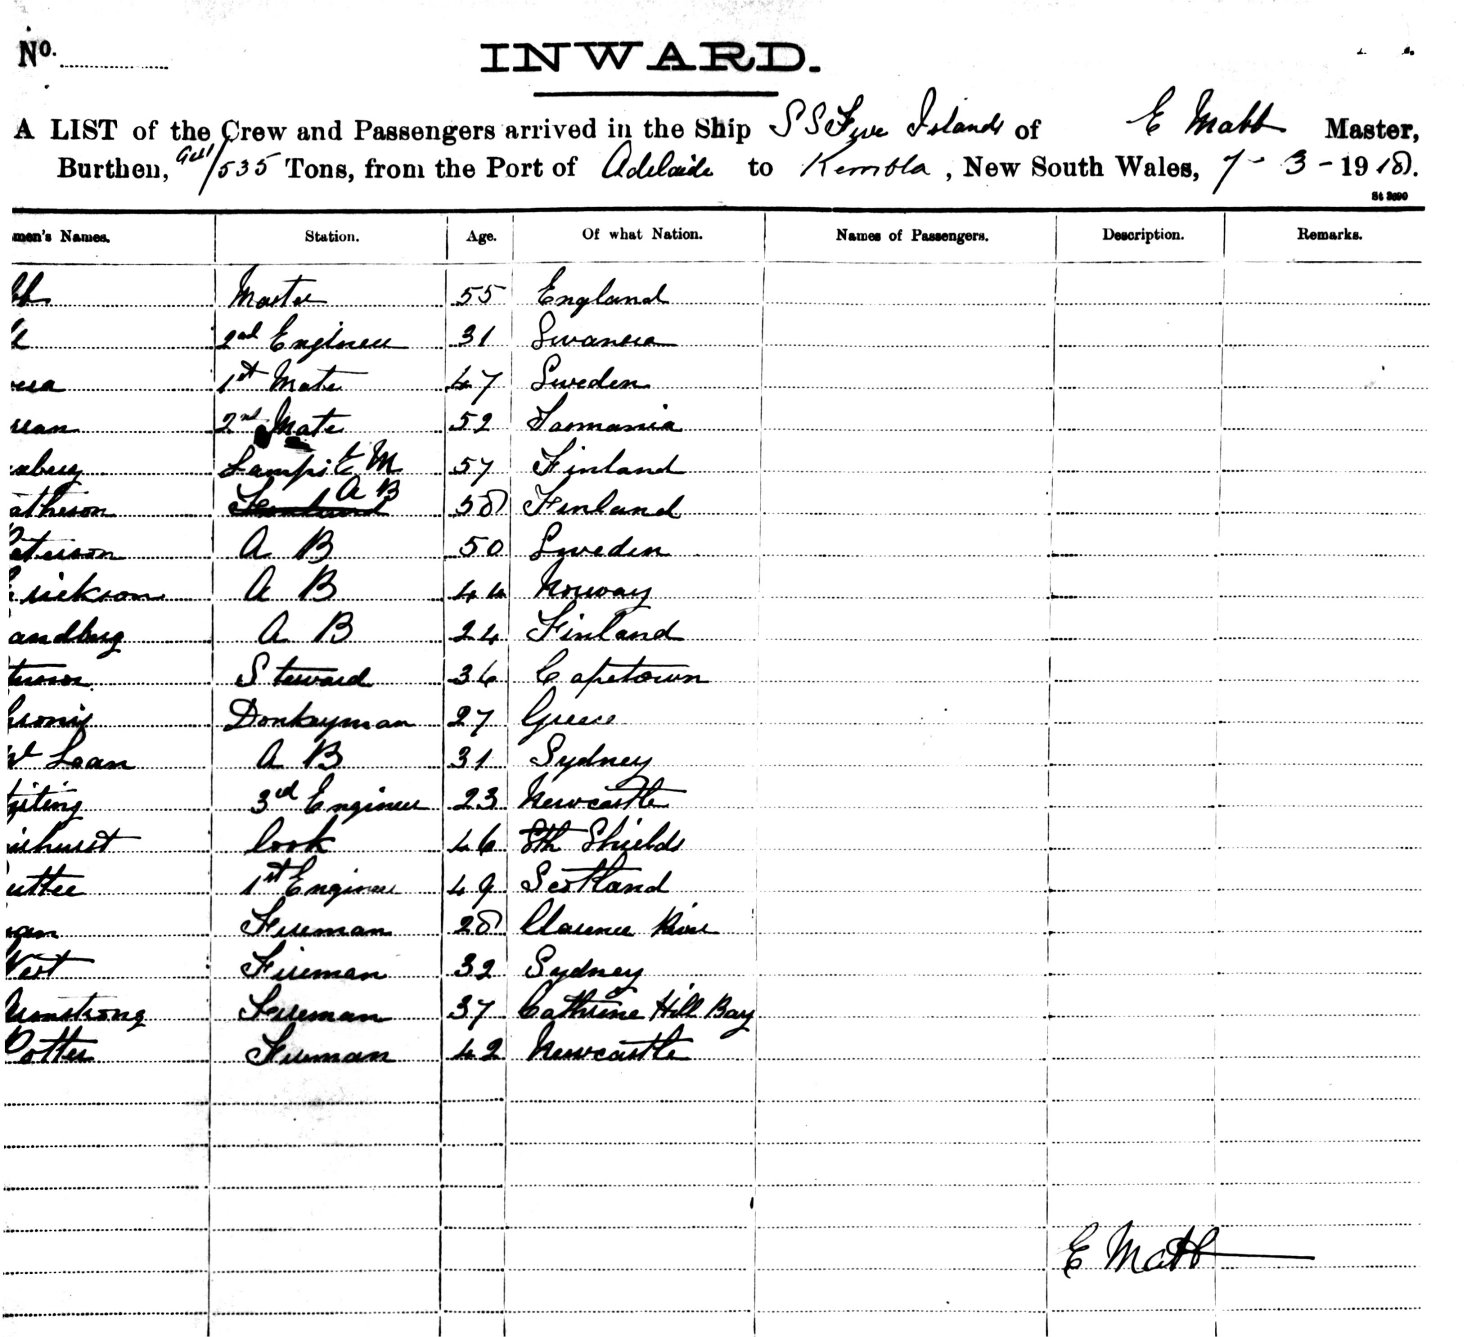 No.
INWARD.
A LIST of the Crew and Passengers arrived in the Ship S S Five Islands of E Mabb Master,
Burthen, 535 Tons, from the Port of Adelaide to Kembla, New South Wales, 7 - 3 - 1918.
St 3690
men's Names. Station. Age. Of what Nation. Names of Passengers. Description. Remarks.
bb Master 55 England
2nd Engineer 31 Swansea
1st Mate 47 Sweden
2nd Mate 52 Tasmania
berg Lamps & M 57 Finland
atheson A B 58 Finland
Peterson A B 50 Sweden
Erickson A B 44 Norway
andberg A B 24 Finland
Steward 36 Capetown
Donkeyman 27 Greece
Loan A B 31 Sydney
iting 3rd Engineer 23 Newcastle
hurst Cook 46 Sth Shields
1st Engineer 49 Scotland
Fireman 28 Clarence River
West Fireman 32 Sydney
Armstrong Fireman 37 Cathrine Hill Bay
Potter Fireman 42 Newcastle
E Mabb